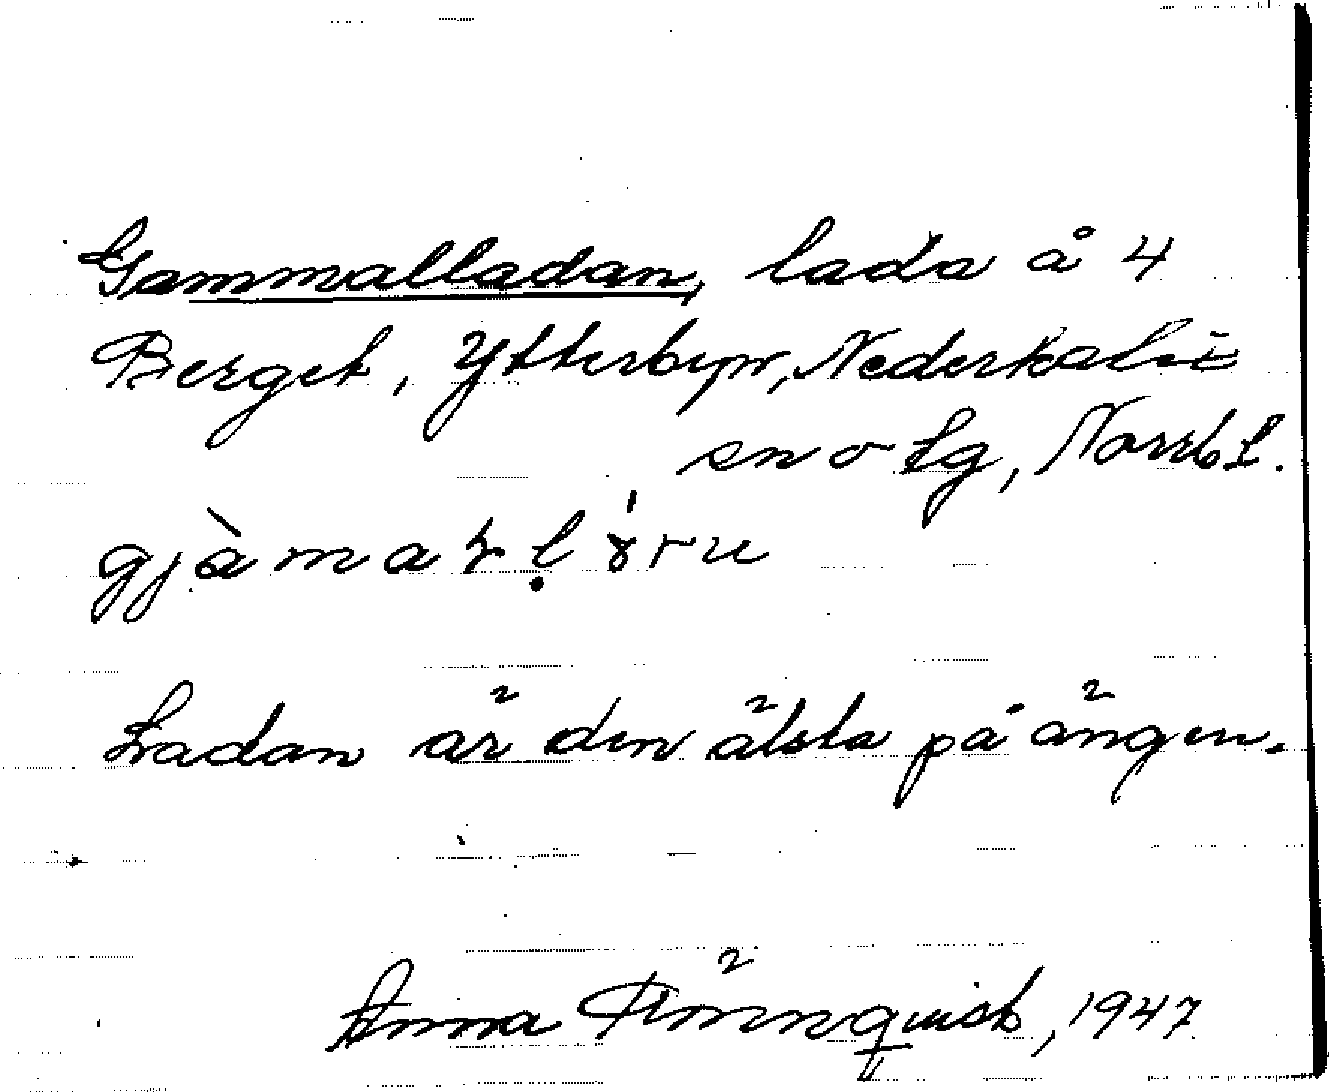 Gammalladan, lada å 4
Berget, Ytterbyn, Nederkalix
sn o tg, Norrb l.
Ladan är den älsta på ängen.
Anna Rönnquist, 1947